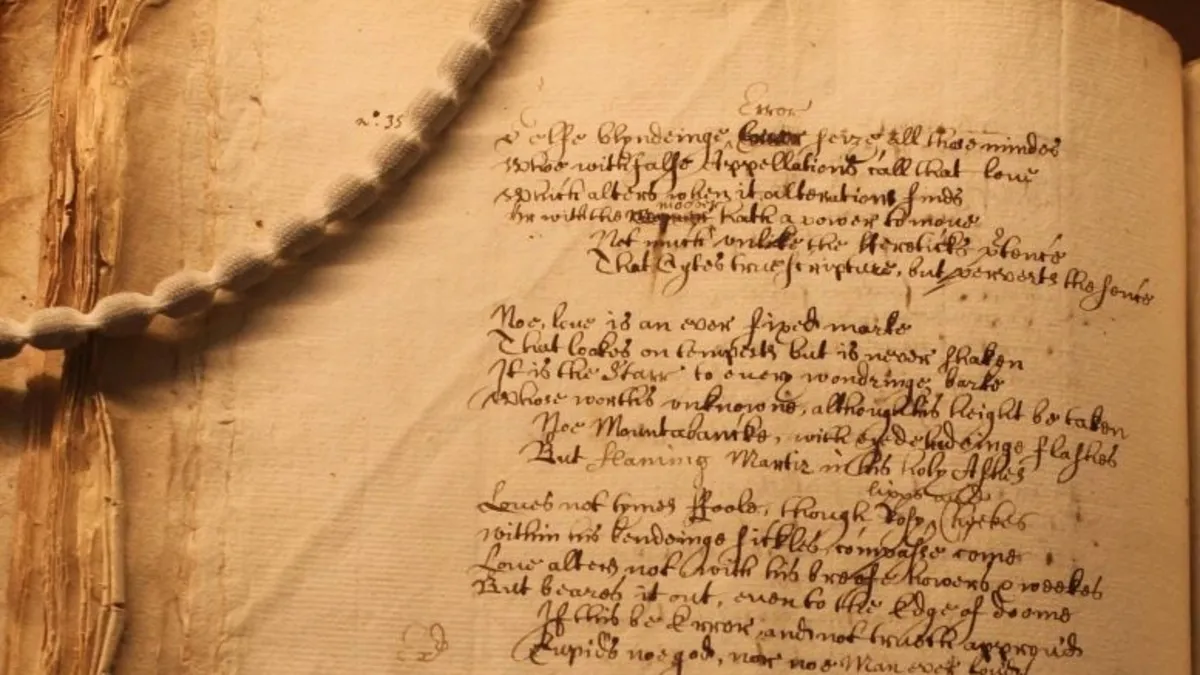 n.o 35
Error
Selfe blyndeinge seize all those mindes
Whoe with false Appellations call that love
Which alters when it alterations finds
Or with the mover hath a power to move
Not much unlike the Hereticks ptence
That Cytes true scripture, but perverts the sence
Noe, love is an ever fixed marke
That lookes on tempests but is never shaken
It is the Starr to every wondringe barke
Whose worth's unknowne, although his height be taken
Noe Mountabancke, with eyedeludeinge flashes
But flaming Martir in his holy Ashes
lipps and
Loves not tymes Foole, though Rosy Cheekes
within his bendeinge sickles compasse come
Love alters not with his breife howers & weekes
But beares it out, even to the Edge of doome
If this be Error and not truth approv'd
Cupids noe god, nor noe Man ever lov'd